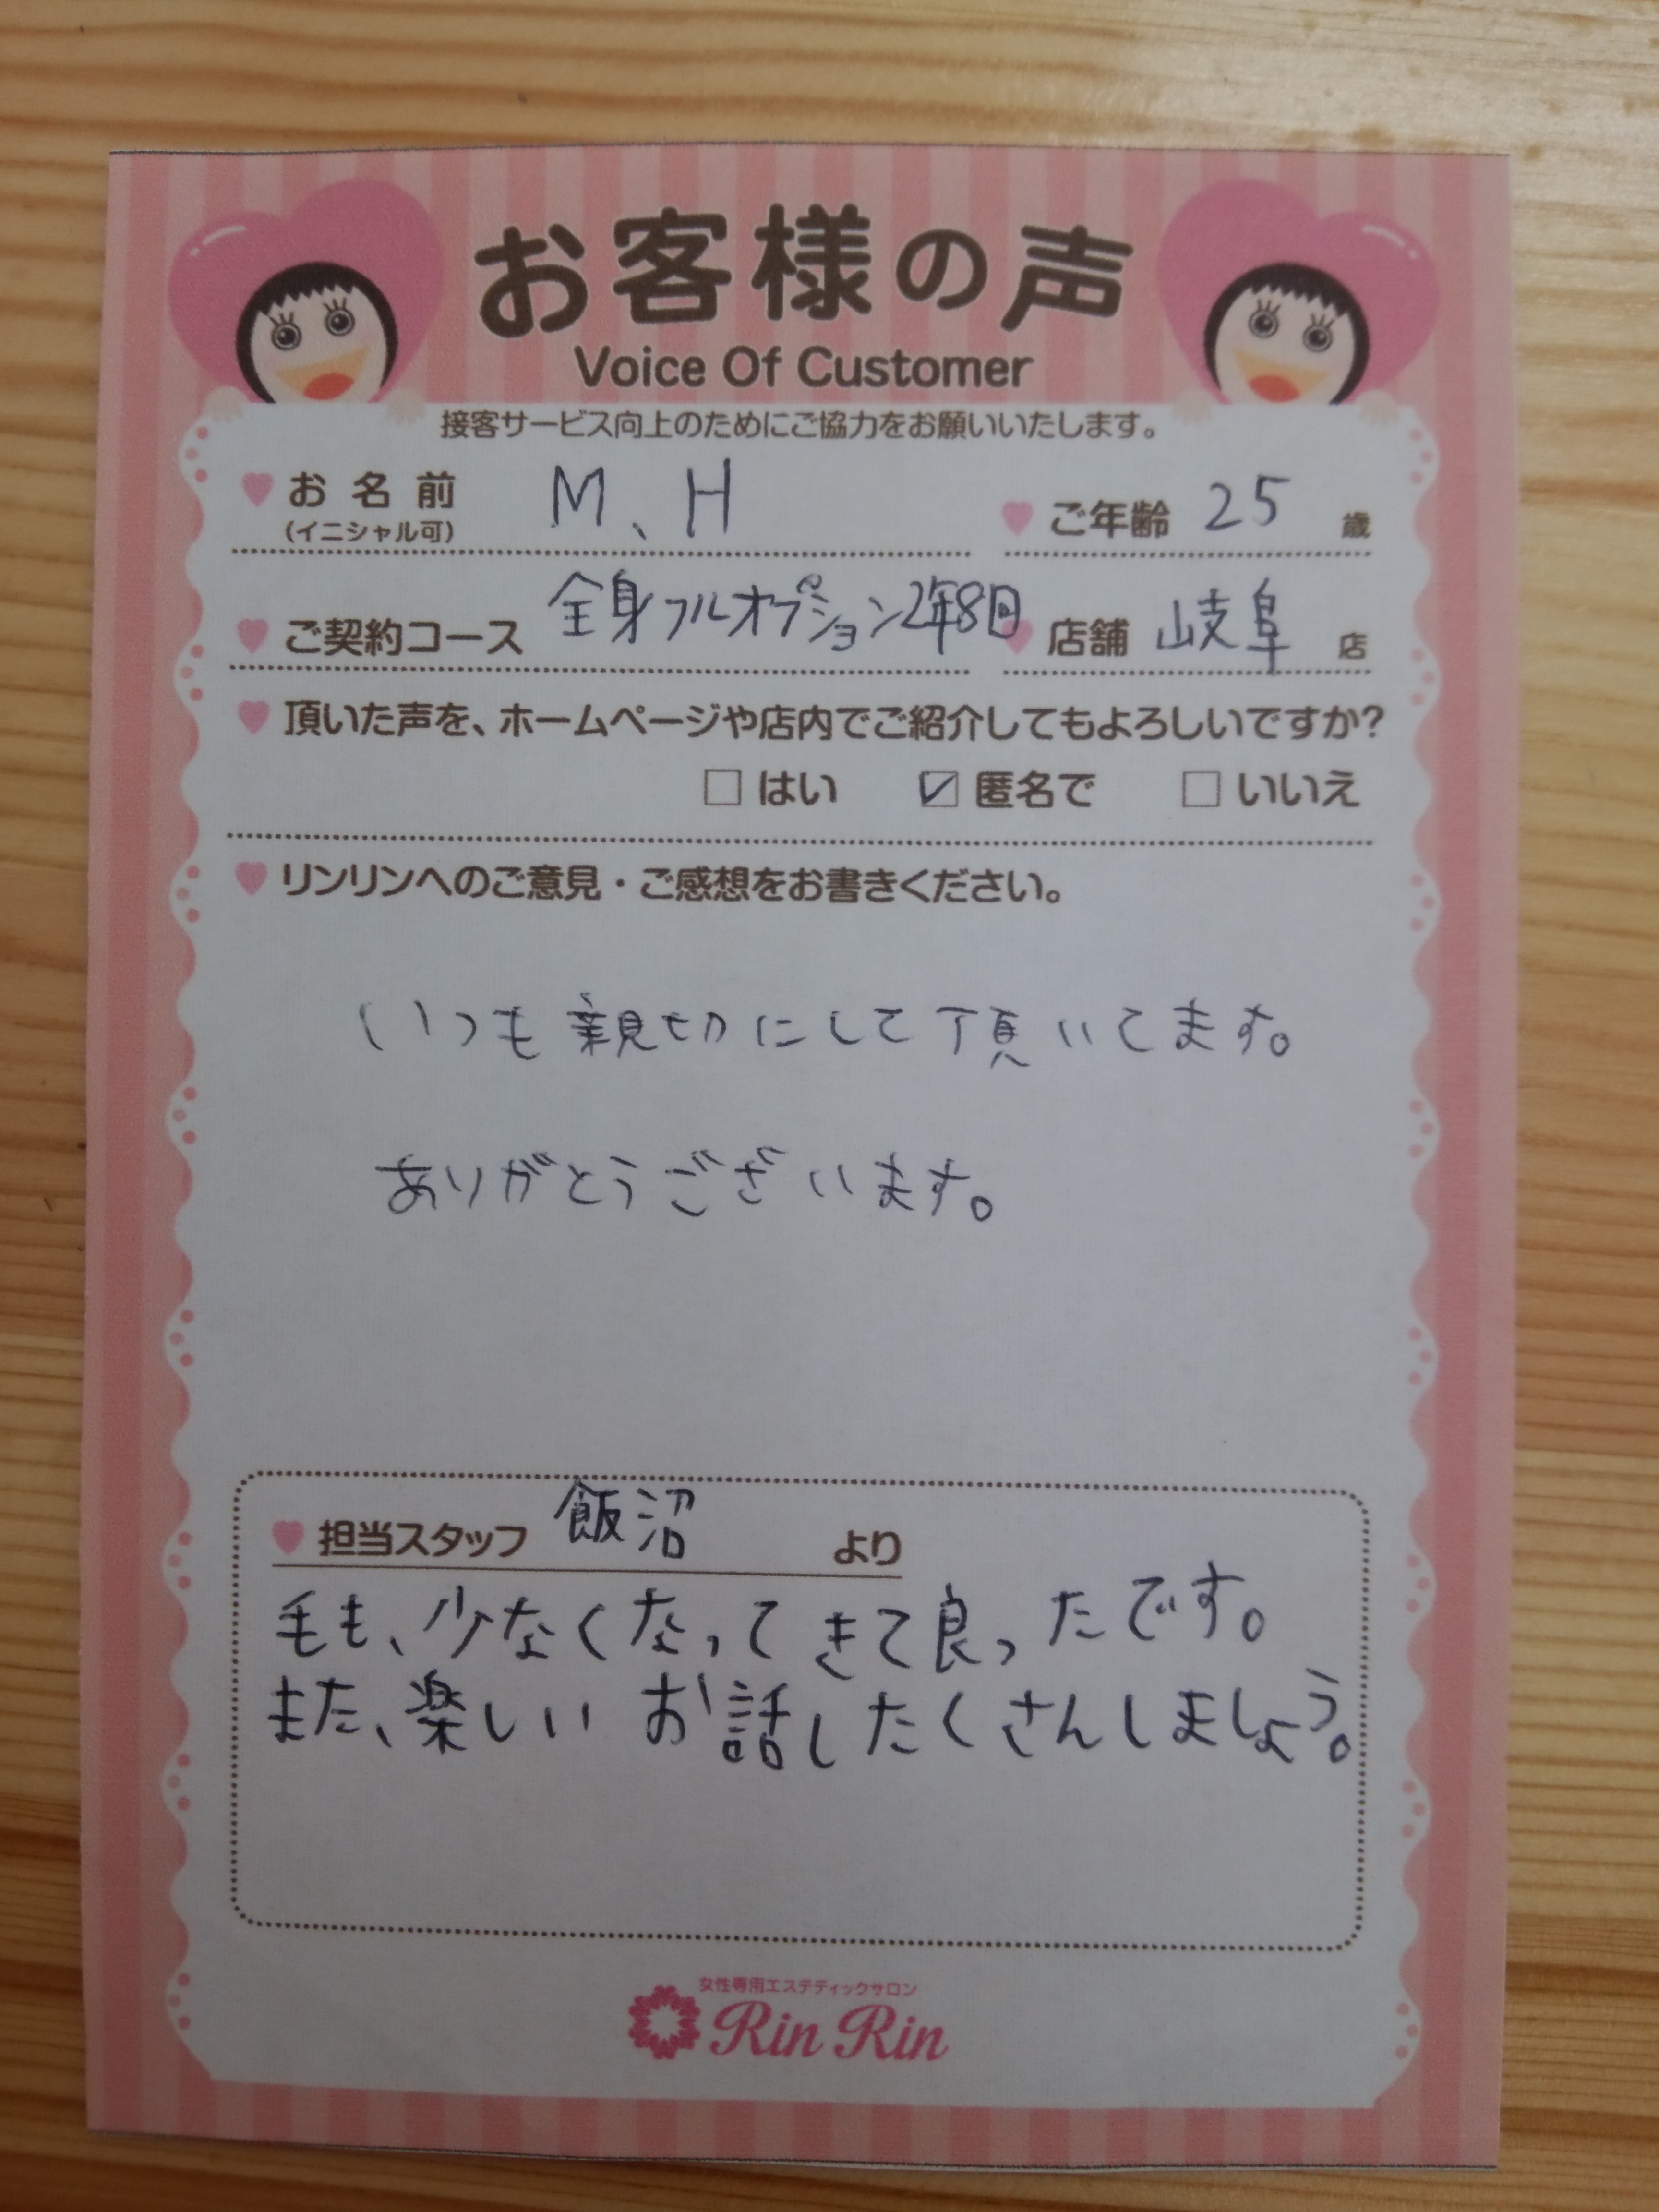 お客様の声
Voice Of Customer
接客サービス向上のためにご協力をお願いいたします。
お名前 M、H ご年齢 25 歳
(イニシャル可)
ご契約コース 全身フルオプション2年8回 店舗 岐阜 店
頂いた声を、ホームページや店内でご紹介してもよろしいですか?
□ はい ☑ 匿名で □ いいえ
リンリンへのご意見・ご感想をお書きください。
いつも親切にして頂いてます。
ありがとうございます。
担当スタッフ 飯沼 より
毛も、少なくなってきて良ったです。
また、楽しいお話したくさんしましょう。
女性専用エステティックサロン
Rin Rin